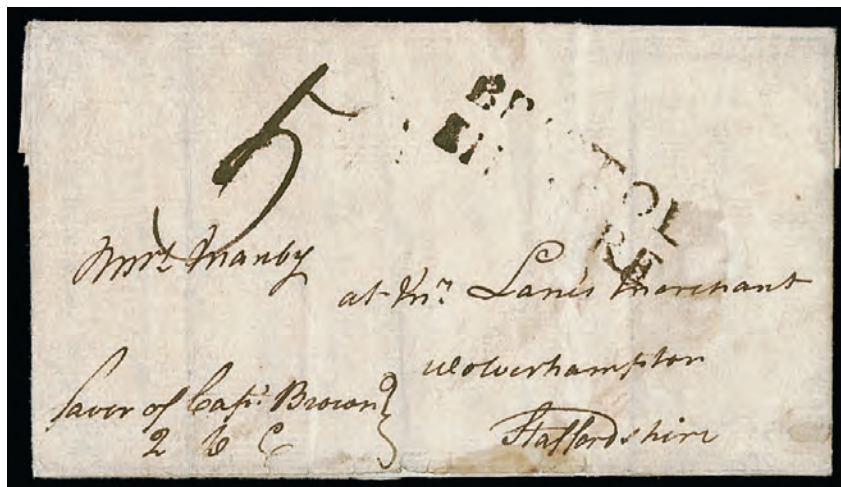 5
BR TOL
RE
Mrs. Manby
at Mr. Lane's Merchant
Wolverhampton
Staffordshire
favor of Capt. Brown
2 D C